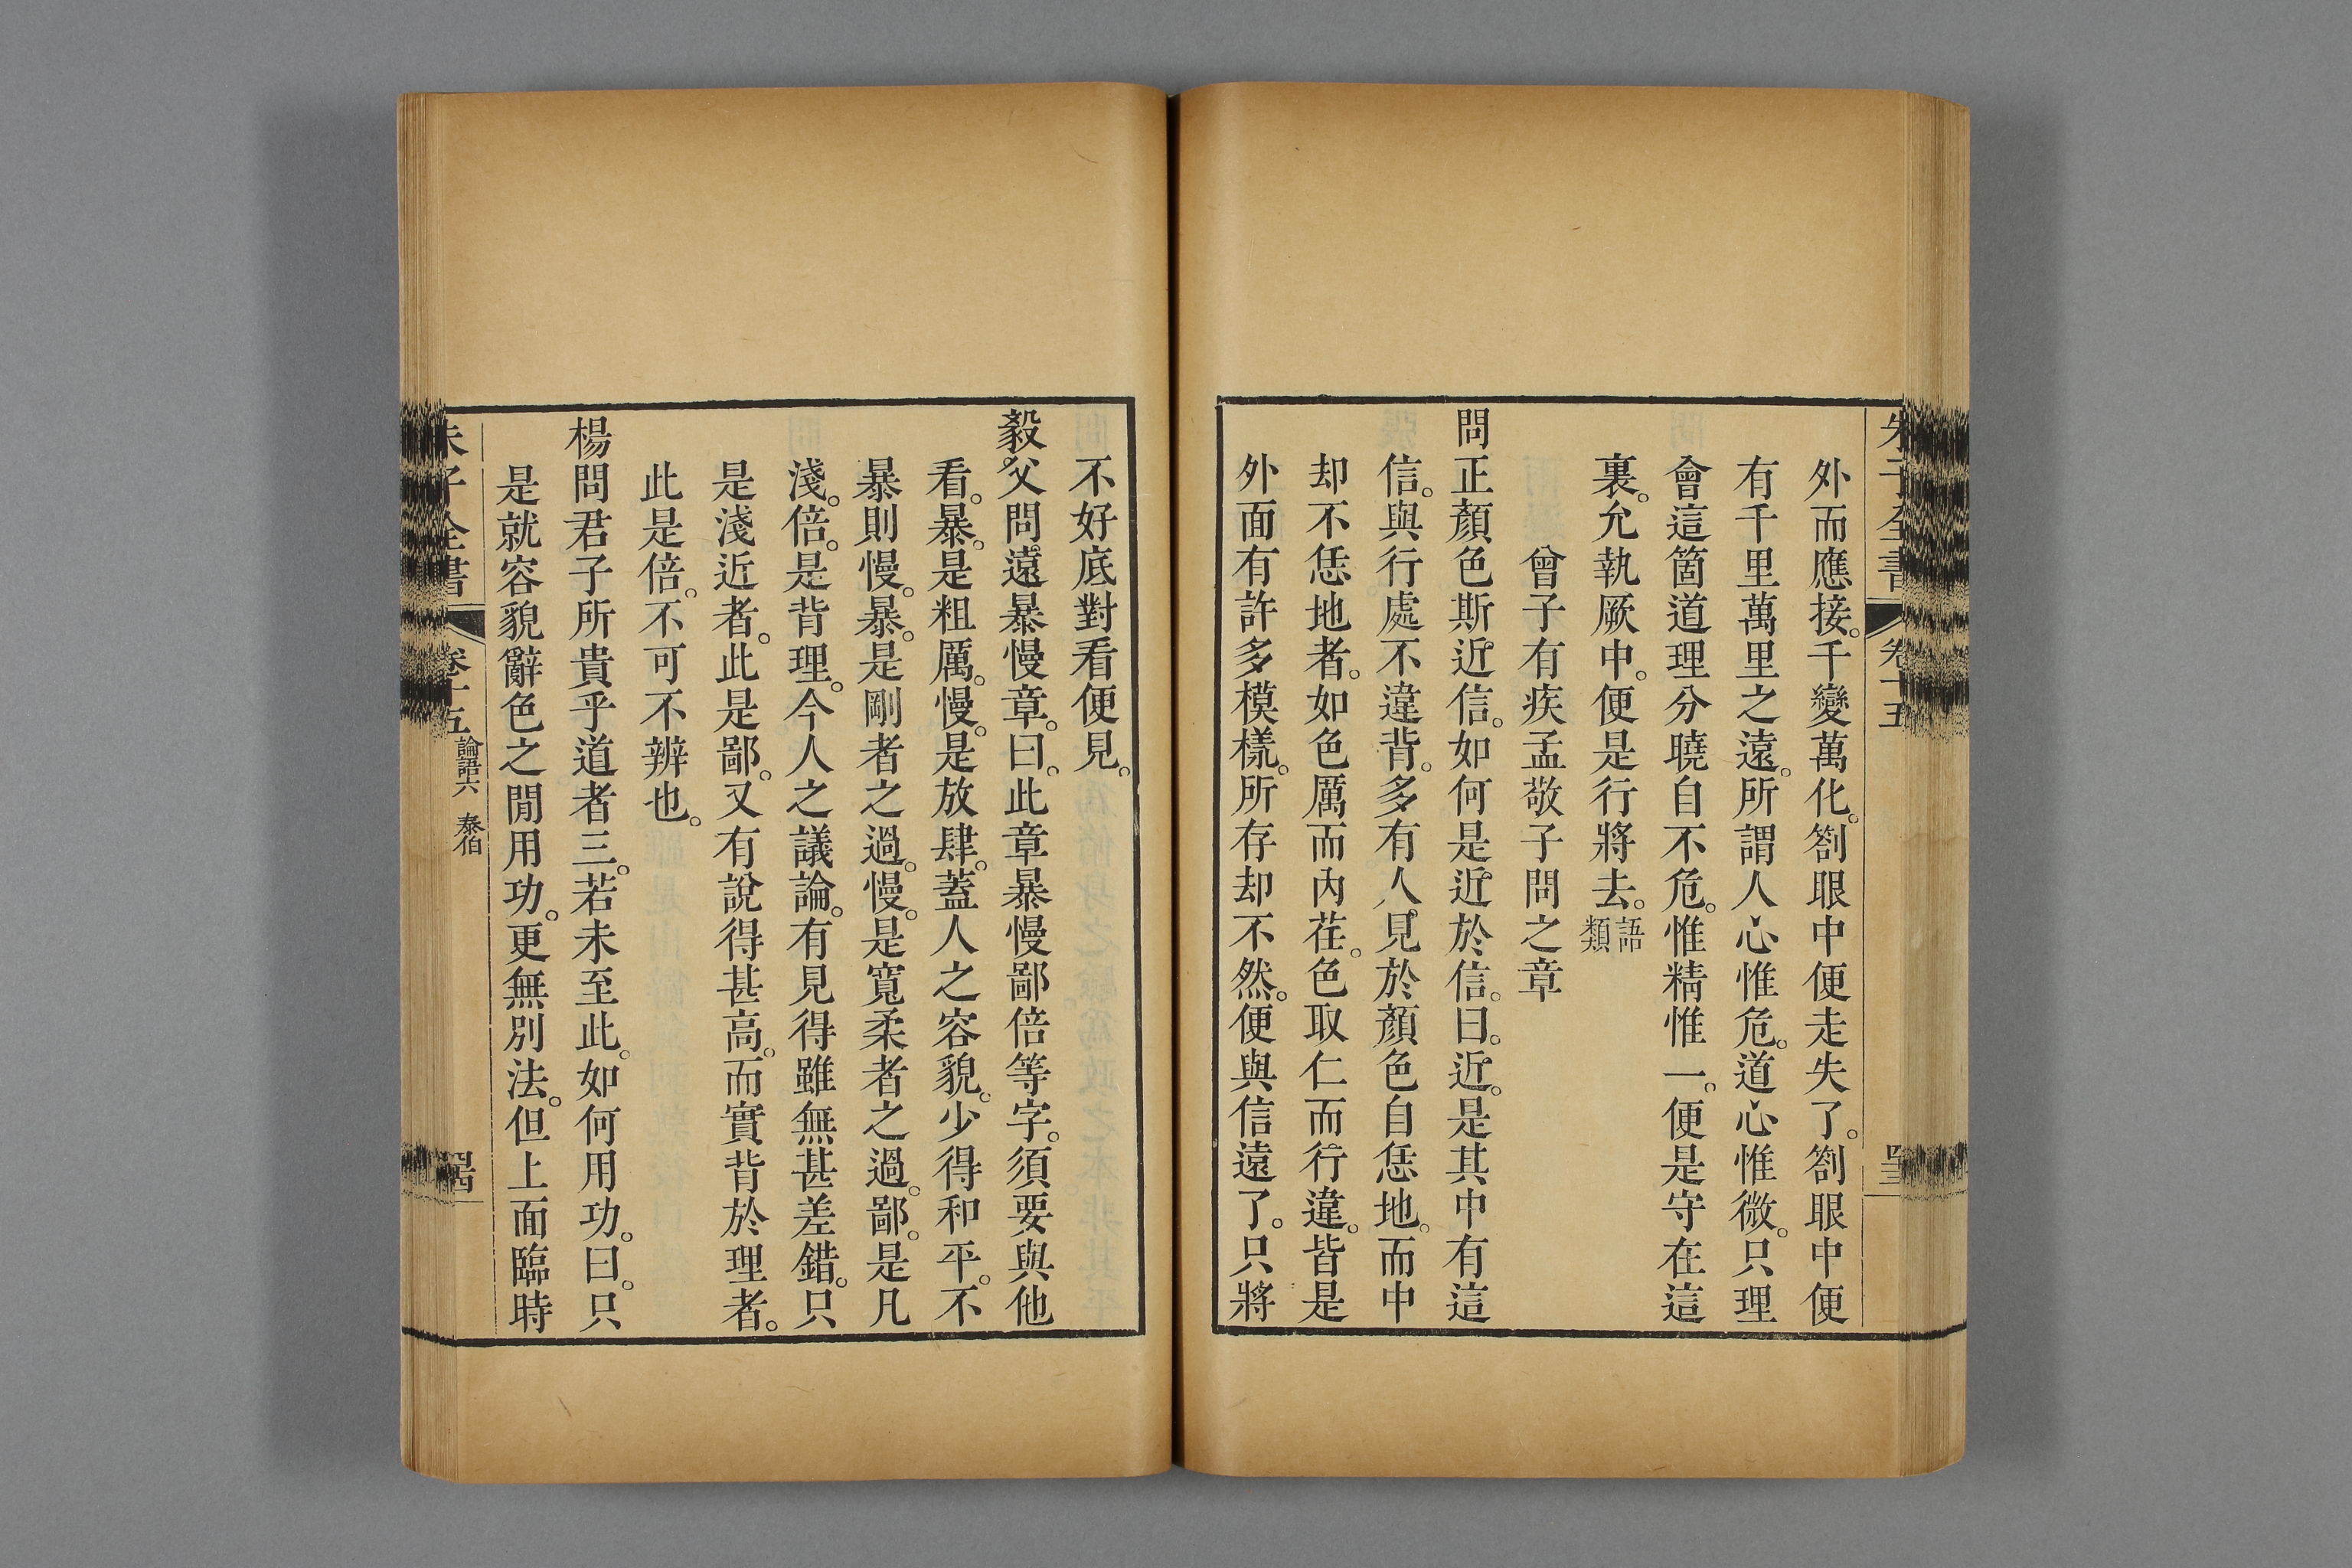 朱子全書 卷十五
外而應接。千變萬化。劄眼中便走失了。劄眼中便
有千里萬里之遠。所謂人心惟危。道心惟微。只理
會這箇道理分曉自不危。惟精惟一。便是守在這
裏。允執厥中。便是行將去。語類
曾子有疾孟敬子問之章
問正顏色斯近信。如何是近於信。曰。近。是其中有這
信。與行處不違背。多有人見於顏色自恁地。而中
却不恁地者。如色厲而內荏。色取仁而行違。皆是
外面有許多模樣。所存却不然。便與信遠了。只將
不好底對看便見。
毅父問。遠暴慢章。曰。此章暴慢鄙倍等字。須要與他
看。暴。是粗厲。慢。是放肆。蓋人之容貌。少得和平。不
暴則慢。暴。是剛者之過。慢。是寬柔者之過。鄙。是凡
淺。倍。是背理。今人之議論。有見得雖無甚差錯。只
是淺近者。此是鄙。又有說得甚高。而實背於理者。
此是倍。不可不辨也。
楊問君子所貴乎道者三。若未至此。如何用功。曰。只
是就容貌辭色之閒用功。更無別法。但上面臨時
朱子全書 卷十五 論語六 泰伯